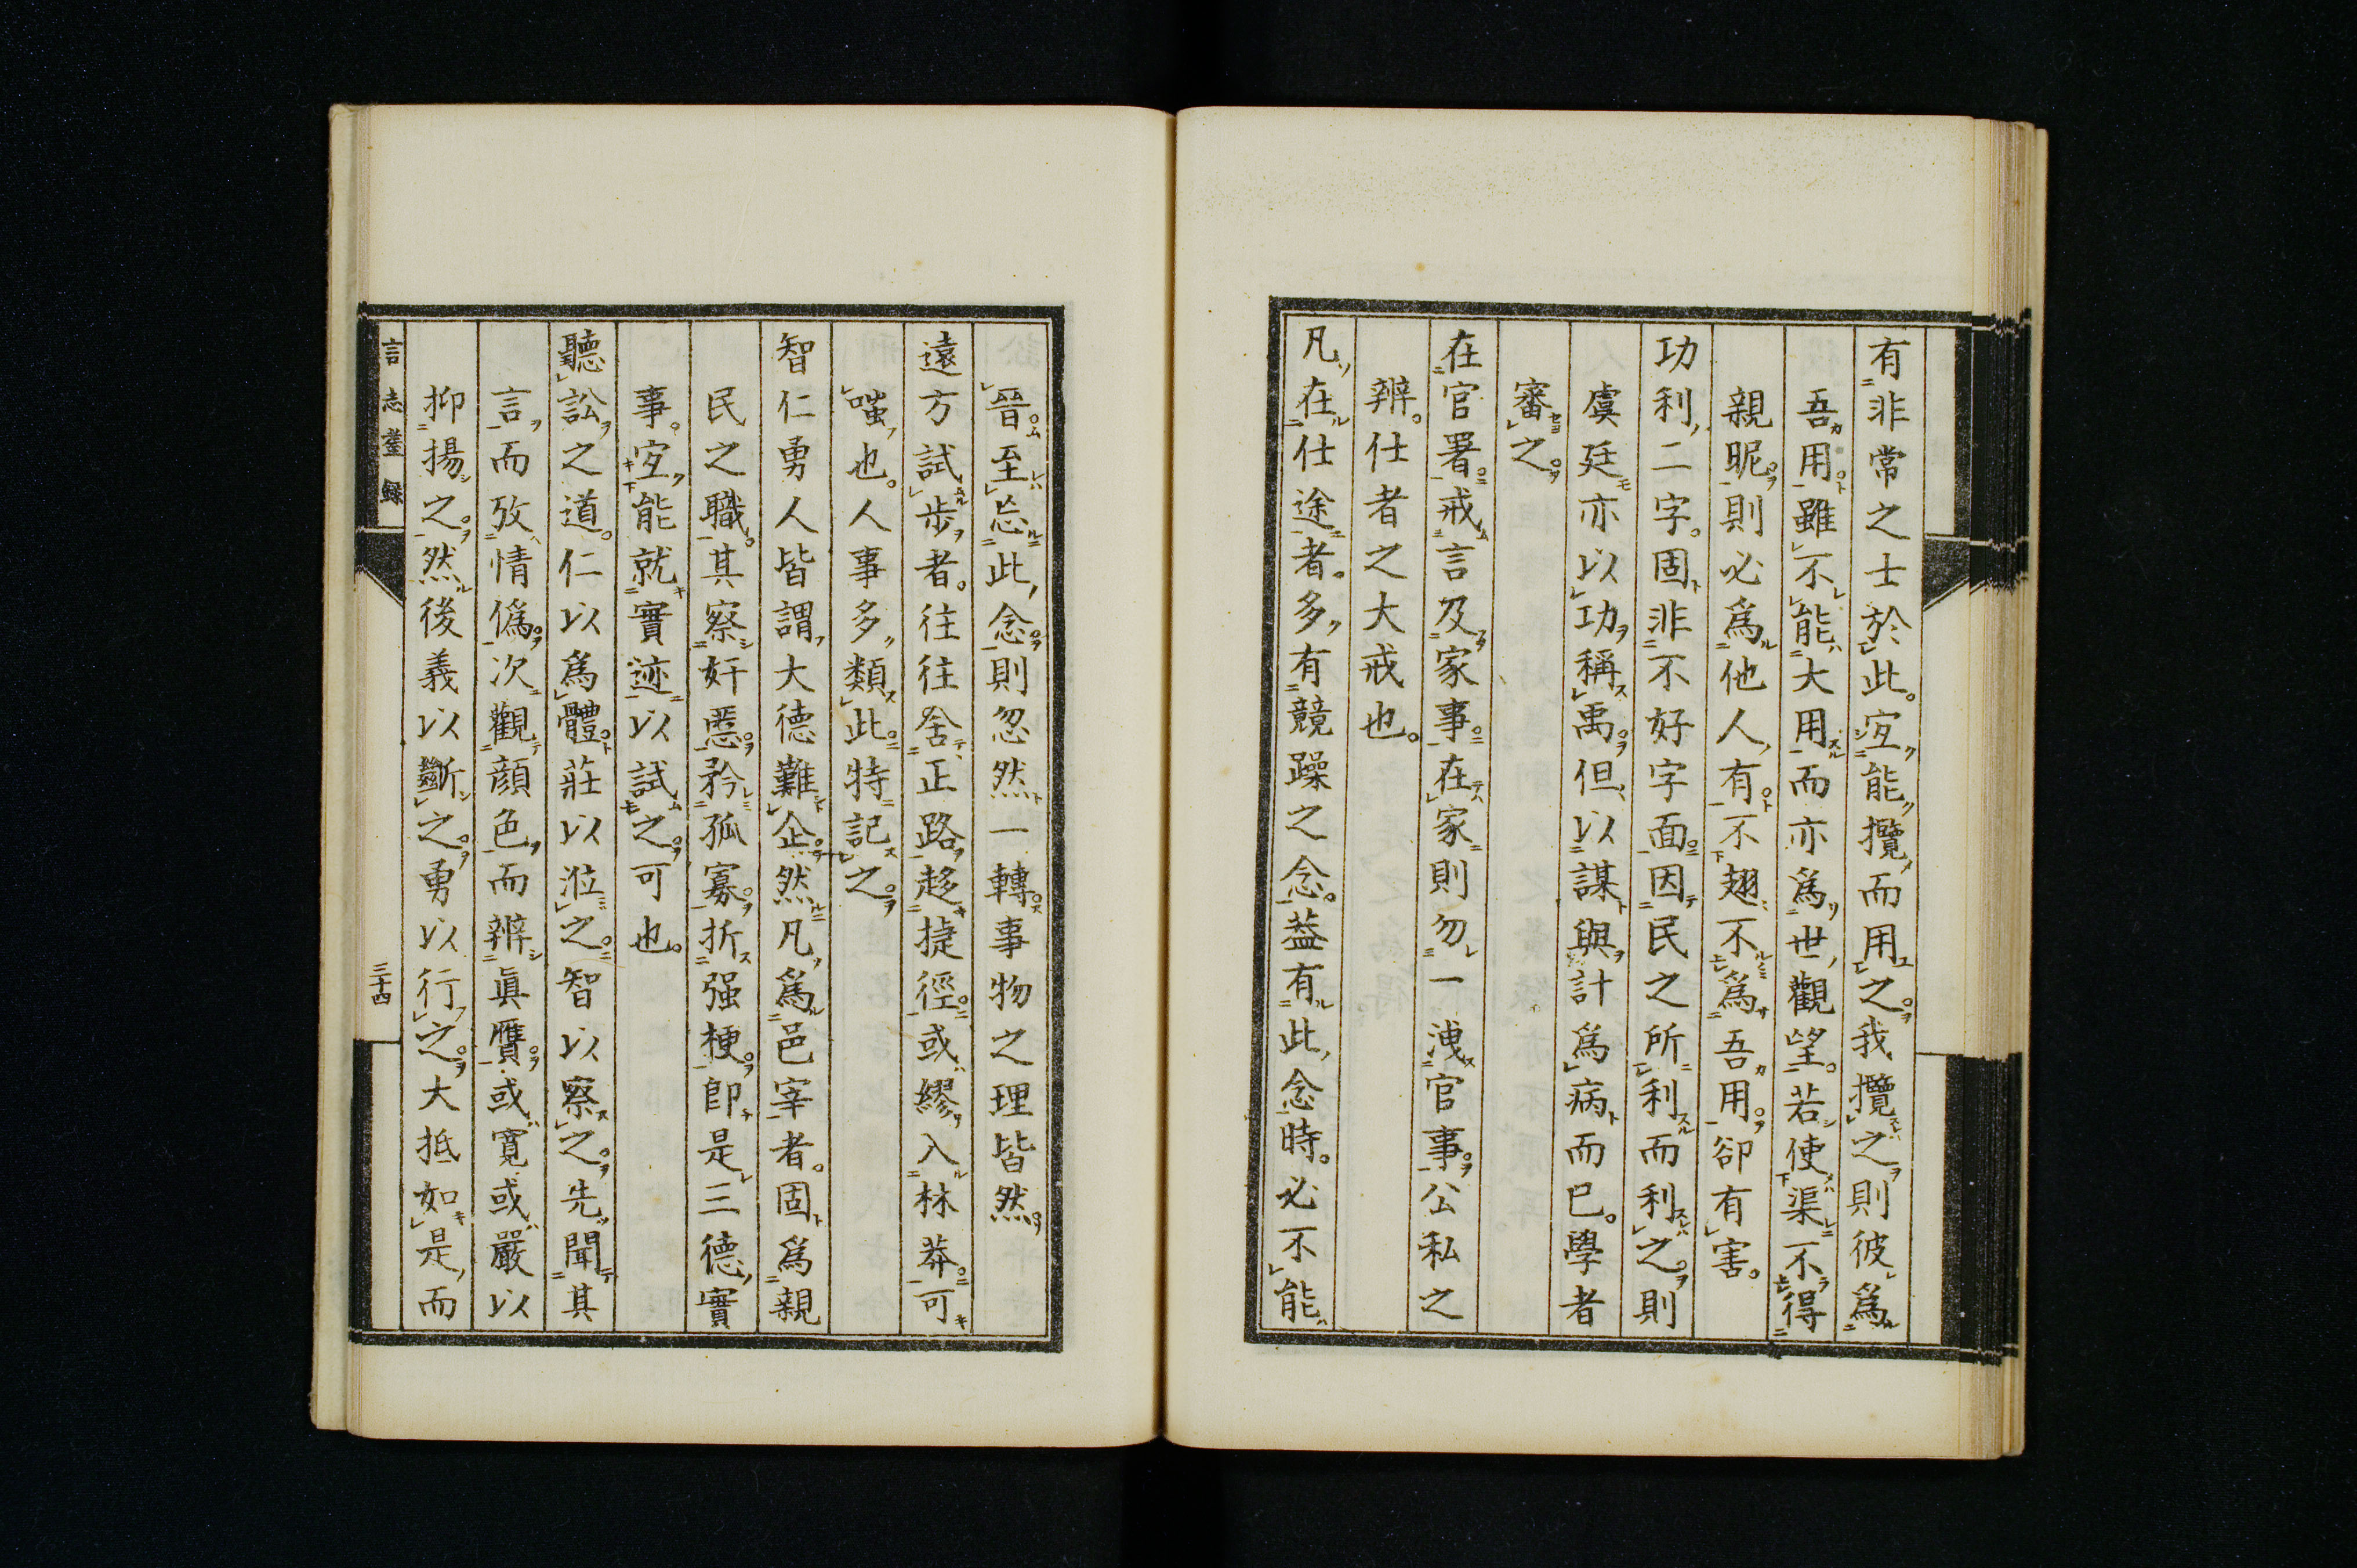 有非常之士於此。宜能攬而用之。我攬之則彼爲
吾用。雖不能大用而亦爲世觀望。若使渠不得
親昵。則必爲他人有。不翅不爲吾用。卻有害。
功利二字。固非不好字面。因民之所利而利之。則
虞廷亦以功稱禹。但以謀與計爲病而已。學者
審之。
在官署。戒言及家事。在家則勿一洩官事。公私之
辨。仕者之大戒也。
凡在仕途者。多有競躁之念。葢有此念時。必不能
晉。至忘此念。則忽然一轉。事物之理皆然。
遠方試步者。往往舍正路。趍捷徑。或繆入林莽。可
嗤也。人事多類此。特記之。
智仁勇人皆謂大德難企。然凡爲邑宰者。固爲親
民之職。其察奸慝。矜孤寡。折强梗。卽是三德實
事。宜能就實迹以試之。可也。
聽訟之道。仁以爲體。莊以涖之。智以察之。先聞其
言而攷情僞。次觀顔色而辨眞贋。或寬或嚴以
抑揚之。然後義以斷之。勇以行之。大抵如是。而
言志耋録
三十四